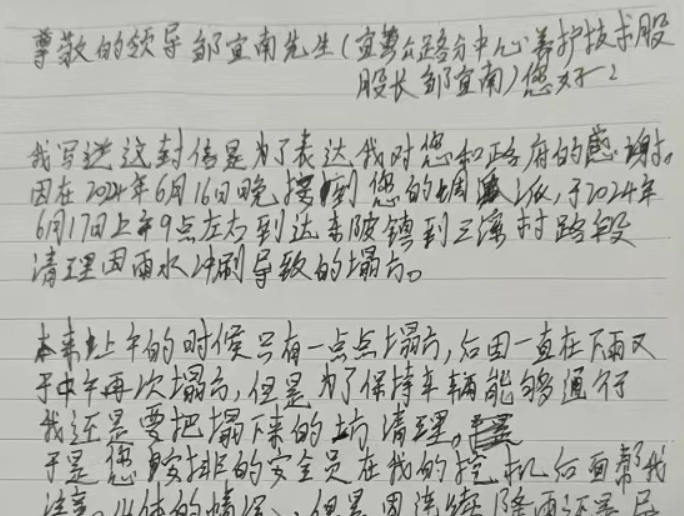 尊敬的领导邹宜南先生(宜黄公路分中心养护技术股
股长邹宜南)您好!
我写这封信是为了表达我对您和政府的感谢。
因在2024年6月16日晚接到您的,于2024年
6月17日上午9点左右到达东陂镇到三溪村路段
清理因雨水冲刷导致的塌方。
本来上午的时候只有一点点塌方,后因一直在下雨又
于中午再次塌方,但是为了保持车辆能够通行
我还是要把塌下来的土方清理。
于是您安排的安全员在我的挖机后面帮我
注意山体的情况,但是因连续降雨还是导